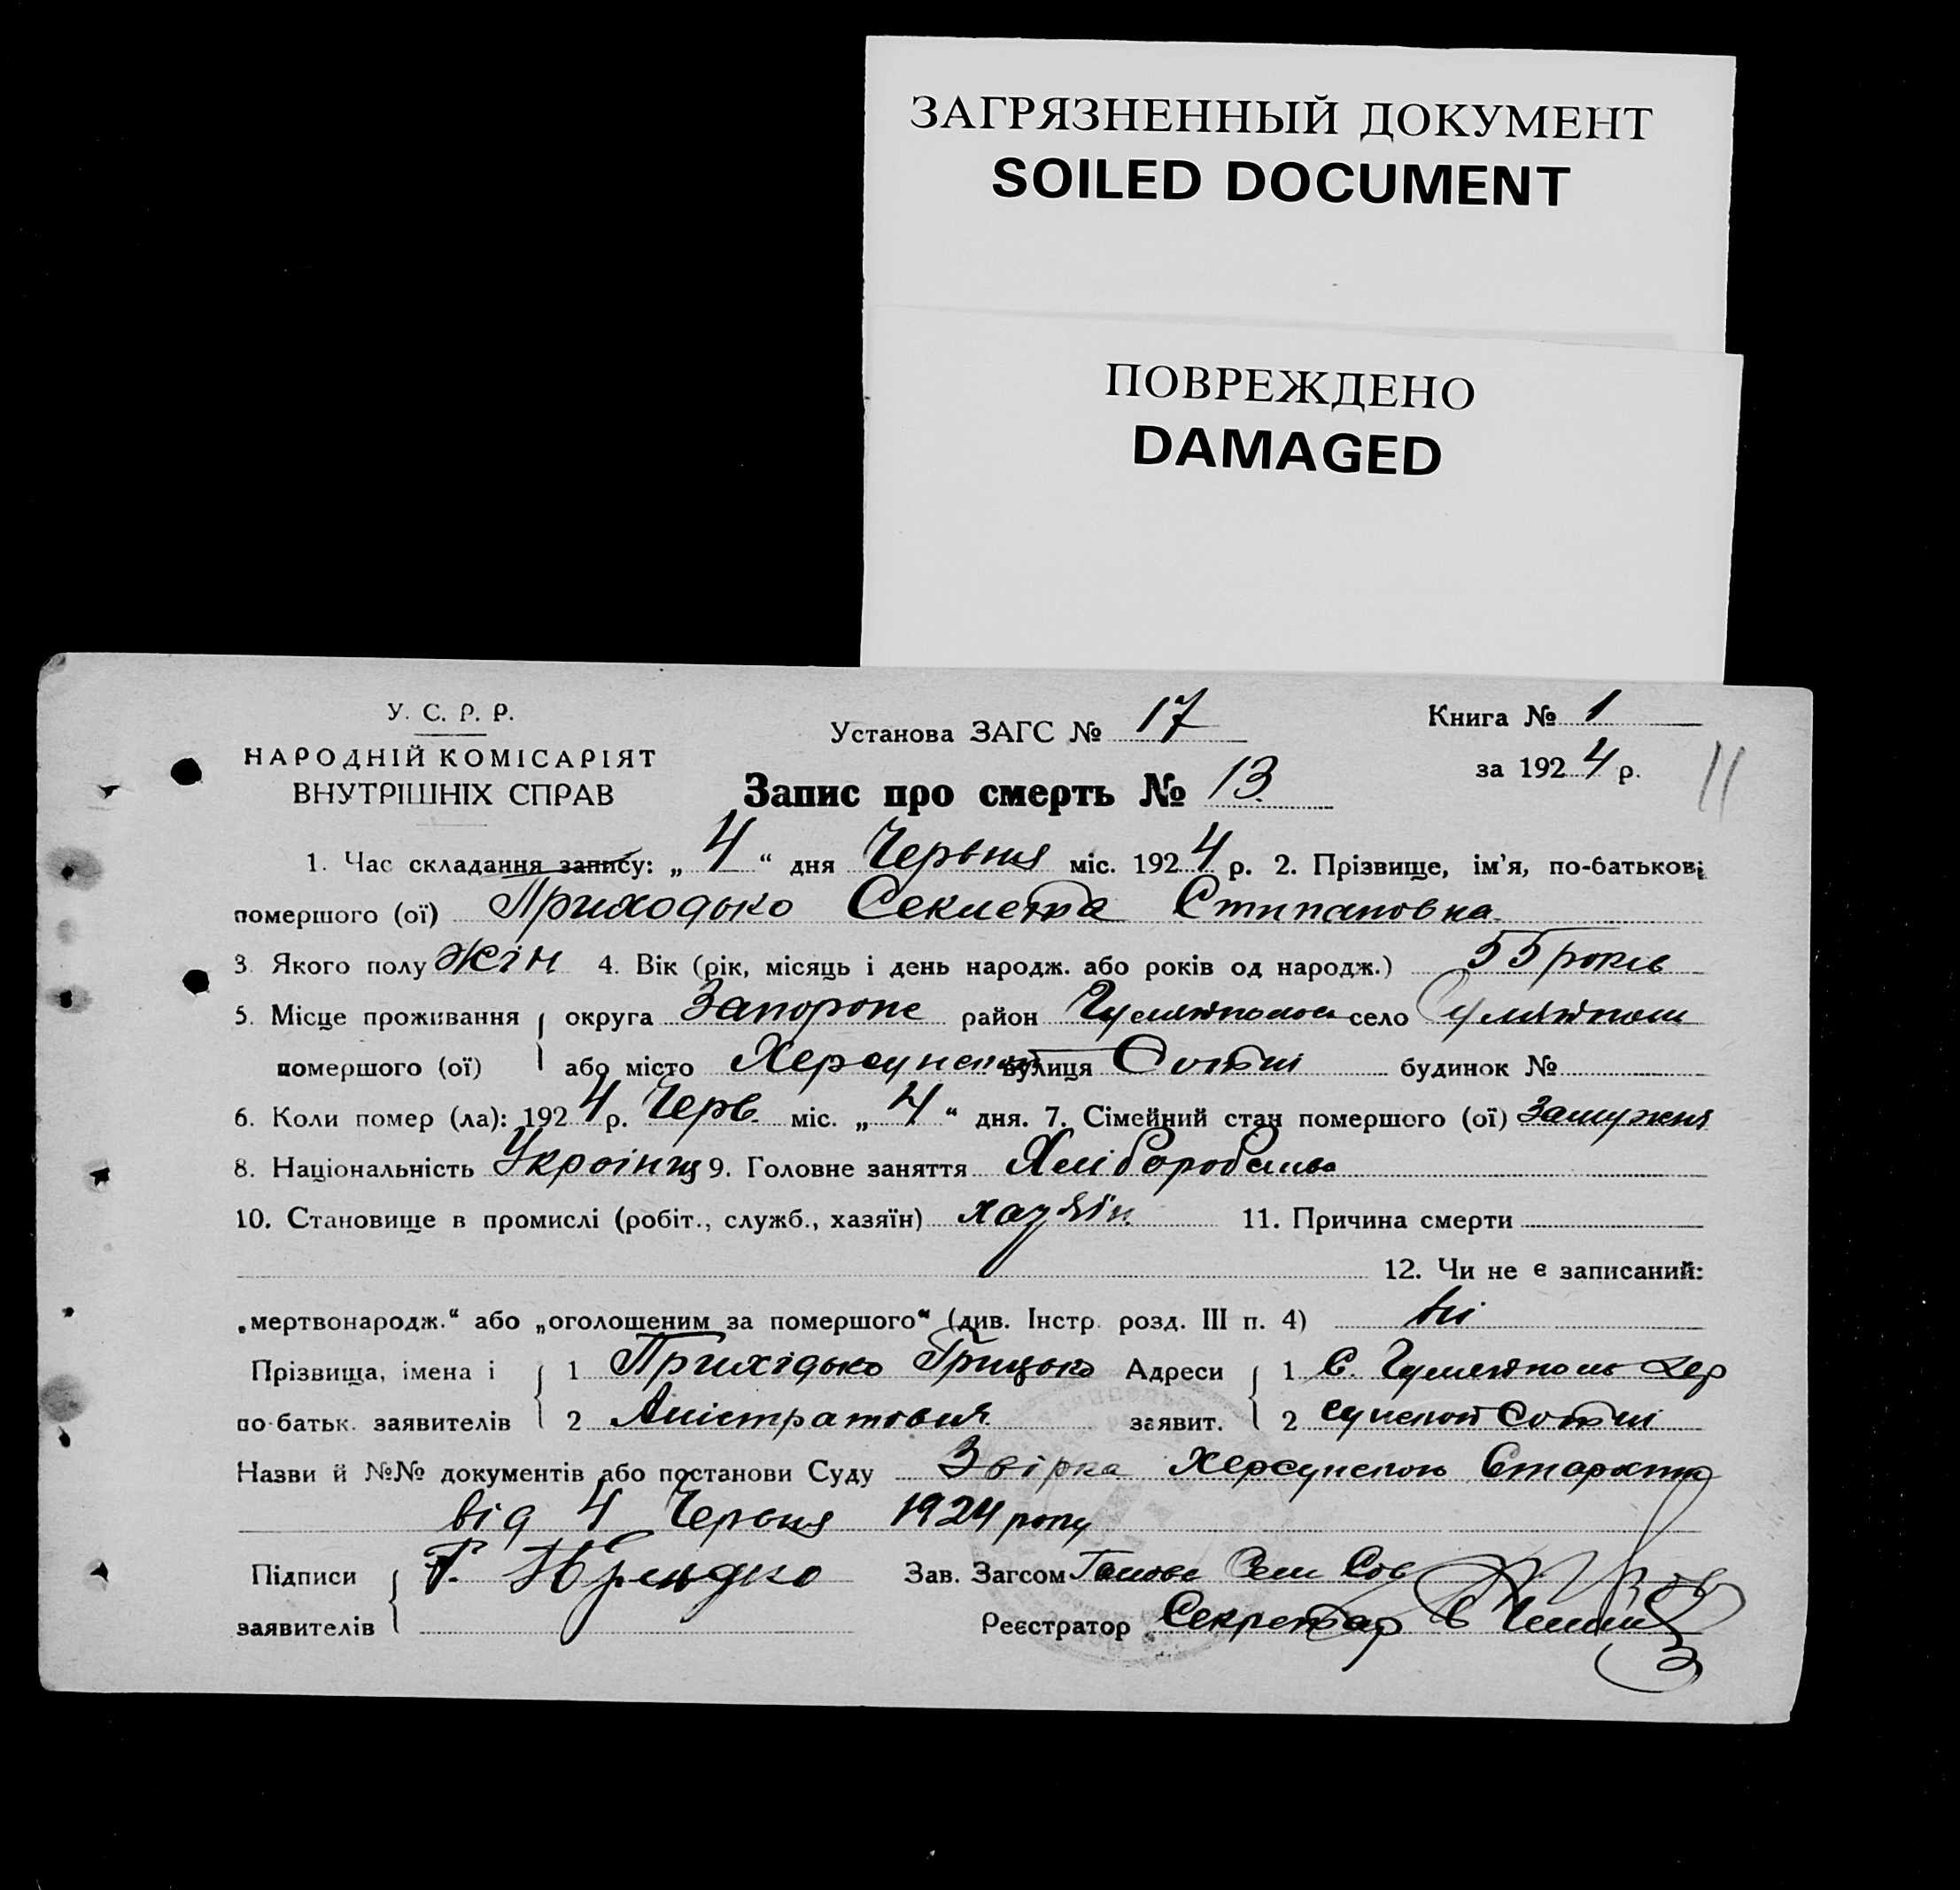 ЗАГРЯЗНЕННЫЙ ДОКУМЕНТ
SOILED DOCUMENT
ПОВРЕЖДЕНО
DAMAGED
У. С. Р. Р.
НАРОДНІЙ КОМІСАРІЯТ
ВНУТРІШНІХ СПРАВ
Установа ЗАГС № 17
Книга № 1
за 1924 р.
11
Запис про смерть № 13
1. Час складання запису: „4“ дня Червня міс. 1924 р. 2. Прізвище, ім'я, по-батькові
помершого (ої) Приходько Секлета Стипановна
3. Якого полу жін 4. Вік (рік, місяць і день народж. або років од народж.) 55 років
5. Місце проживання округа Запорожс район село
помершого (ої) або місто Херсунська вулиця Сотні будинок №
6. Коли помер (ла): 1924 р. Черв. міс. „4“ дня. 7. Сімейний стан помершого (ої) Замужня
8. Національність 9. Головне заняття Хліборобства
10. Становище в промислі (робіт., служб., хазяїн) хазяїн 11. Причина смерти
12. Чи не є записаний:
„мертвонародж.“ або „оголошеним за помершого“ (див. Інстр. розд. III п. 4) ні
Прізвища, імена і 1 Прихідько Грицько Адреси 1 С. Хер
по-батьк. заявителів 2 заявит. 2 сунской Сотні
Назви й №№ документів або постанови Суду Звірка Херсунскою
від 4 Червня 1924 року
Підписи Г. Зав. Загсом Голова Сов
заявителів Реєстратор Секретар